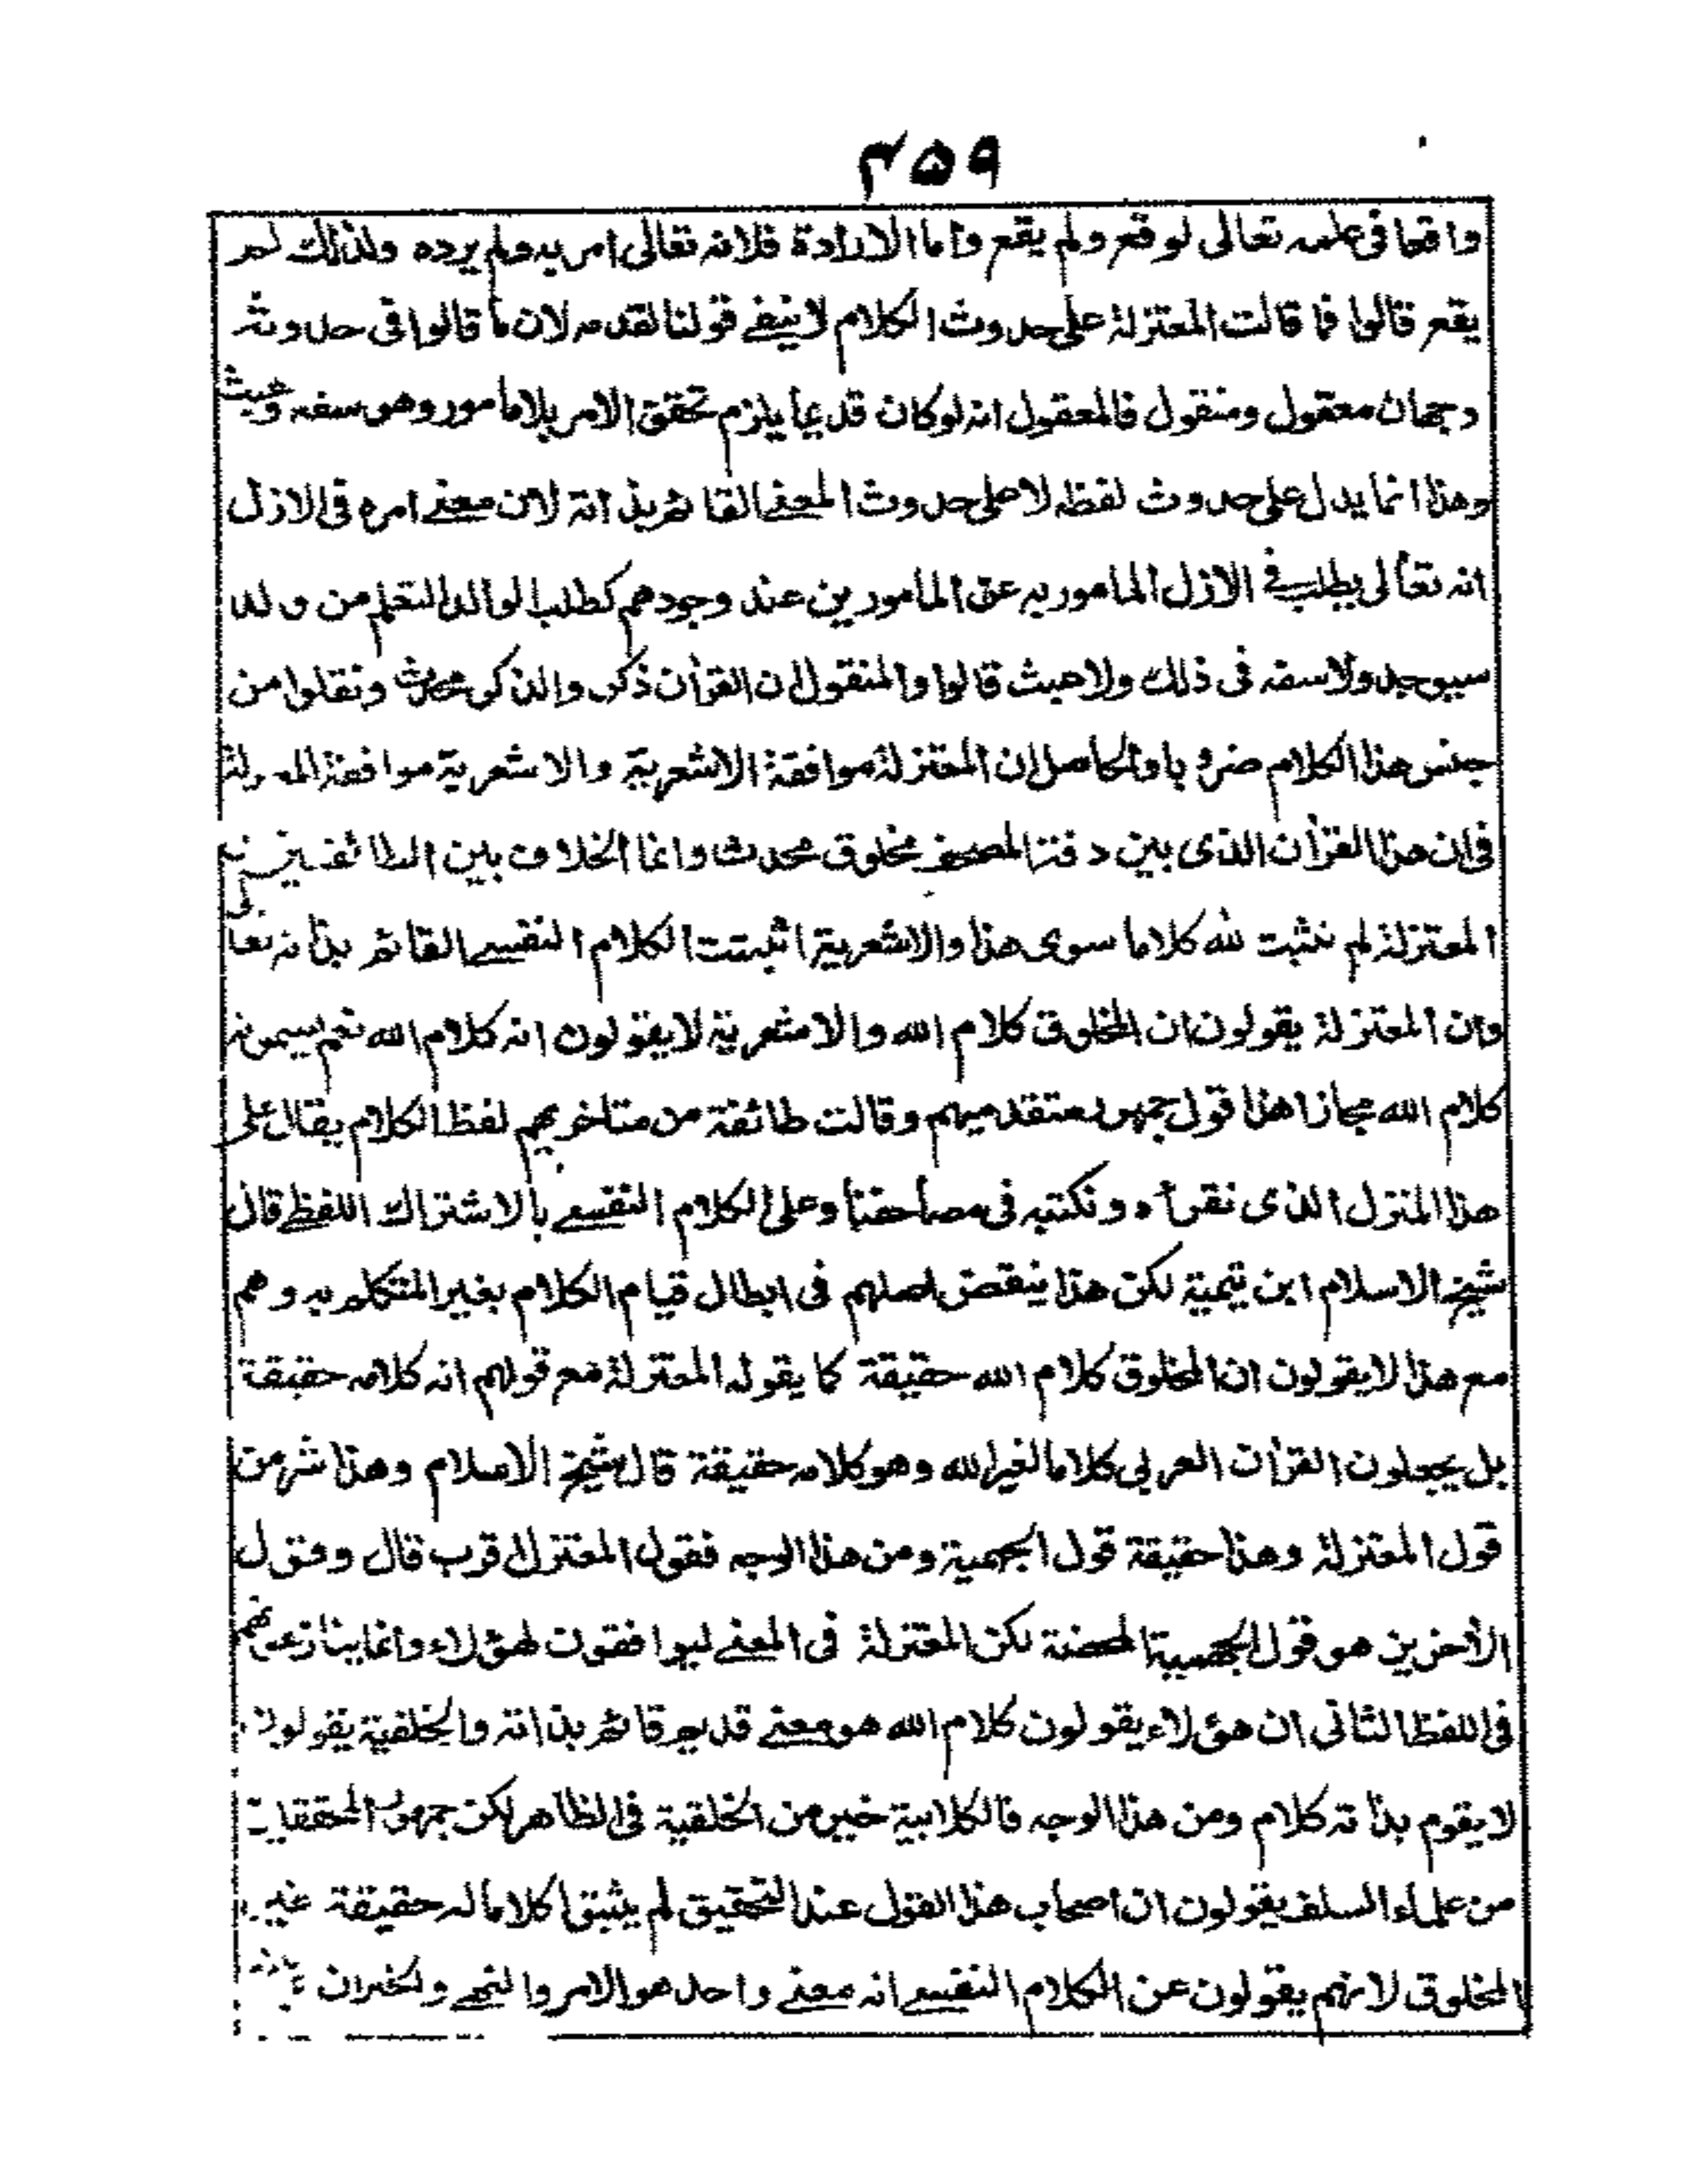 ٣٥٩
واقعا فى علمه تعالى لوقع ولم يقع وأما الارادة فلانه تعالى امر به ولم يرده ولذلك لم
يقع قالوا فما قالت المعتزلة على حدوث الكلام لا ينفے قولنا لقدمه لان ما قالوا فى حدوثه
وجهان معقول ومنقول فالمعقول انه لوكان قديما يلزم تحقق الامر بلا مامور وهو سفه وعبث
وهذا انما يدل على حدوث لفظه لا على حدوث المعنے القائم بذاته لان معنے امره فى الازل
انه تعالى يطلب فى الازل المامور به عن المامورين عند وجودهم كطلب الوالد التعلم من ولد
سيوجد ولا سفه فى ذلك ولا عبث قالوا والمنقول ان القرأن ذكر والذكر محدث ونقلوا من
جنس هذا الكلام ضروبا والحاصل ان المعتزلة موافقة الاشعرية والاشعرية موافقة المعتزلة
فى ان هذا القرأن الذى بين دفتى المصحف مخلوق محدث وانما الخلاف بين الطائفتين
المعتزلة لم تثبت لله كلاما سوى هذا والاشعرية اثبتت الكلام النفسے القائم بذاته تعالى
وان المعتزلة يقولون ان المخلوق كلام الله والاشعرية لا يقولون انه كلام الله نعم يسمونه
كلام الله مجازا هذا قول جمهور متقدميهم وقالت طائفة من متاخريهم لفظ الكلام يقال على
هذا المنزل الذى نقرأه ونكتبه فى مصاحفنا وعلى الكلام النفسے بالاشتراك اللفظے قال
شيخ الاسلام ابن تيمية لكن هذا ينقض اصلهم فى ابطال قيام الكلام بغير المتكلم به وهم
مع هذا لا يقولون ان المخلوق كلام الله حقيقة كما يقوله المعتزلة مع قولهم انه كلامه حقيقة
بل يجعلون القرأن العربى كلاما لغير الله وهو كلامه حقيقة قال شيخ الاسلام وهذا شر من
قول المعتزلة وهذا حقيقة قول الجهمية ومن هذا الوجه فقول المعتزلة اقرب قال وقول
الأخرين هو قول الجهمية المحضة لكن المعتزلة فى المعنے موافقون لهؤلاء وانما ينازعونهم
فى اللفظ الثانى ان هؤلاء يقولون كلام الله هو معنے قديم قائم بذاته والخلقية يقولون
لا يقوم بذاته كلام ومن هذا الوجه فالكلابية خير من الخلقية فى الظاهر لكن جمهور المحققين
من علماء السلف يقولون ان اصحاب هذا القول عند التحقيق لم يثبتوا كلاما له حقيقة غير
المخلوق لانهم يقولون عن الكلام النفسے انه معنے واحد هو الامر والنهے والخبر ان